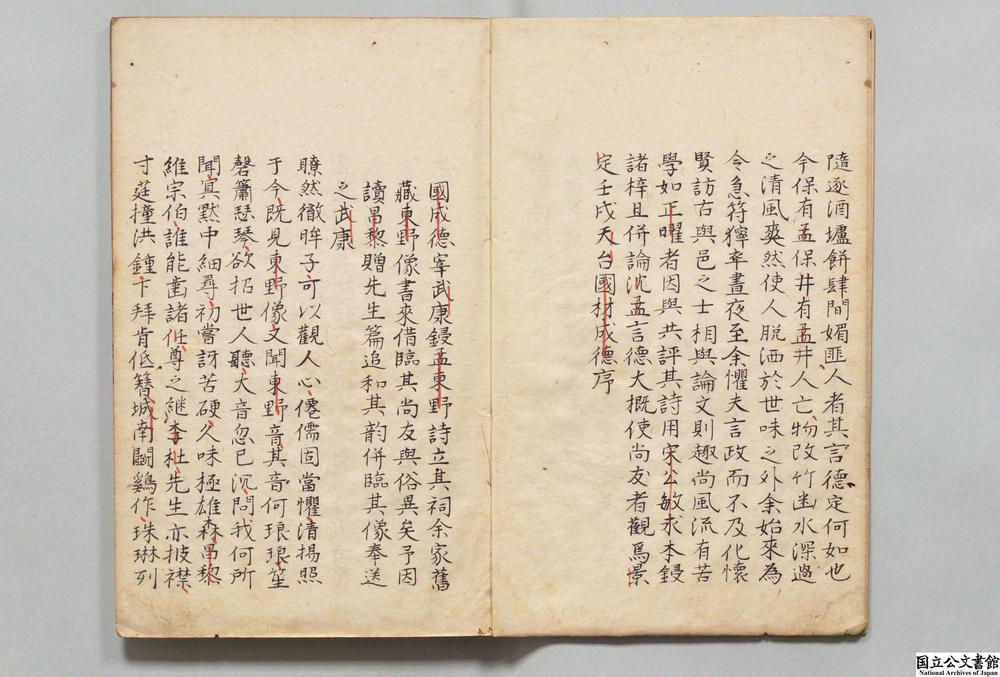 隨逐酒壚餅肆間媚匪人者其言德定何如也
今保有孟保井有孟井人亡物改竹幽水深過
之清風爽然使人脱洒於世味之外余始來為
令急符獰卒晝夜至余懼夫言政而不及化懷
賢訪古與邑之士相與論文則趣尚風流有苦
學如正曜者因與共評其詩用宋公敏求本鋟
諸梓且併論沈孟言德大概使尚友者觀焉景
定壬戌天台國材成德序
國成德宰武康鋟孟東野詩立其祠余家舊
藏東野像書來借臨其尚友與俗異矣予因
讀昌黎贈先生篇追和其韵併臨其像奉送
之武康
瞭然徹眸子可以觀人心僊儒固當懼清揚照
于今既見東野像又聞東野音其音何琅琅笙
磬簫瑟琴欲招世人聽大音忽已沉問我何所
聞冥黙中細尋初嘗訝苦硬久味極雄森昌黎
維宗伯誰能齒諸任尊之継李杜先生亦披襟
寸莛撞洪鍾下拜肯低簪城南鬭鷄作珠琳列
国立公文書館
National Archives of Japan